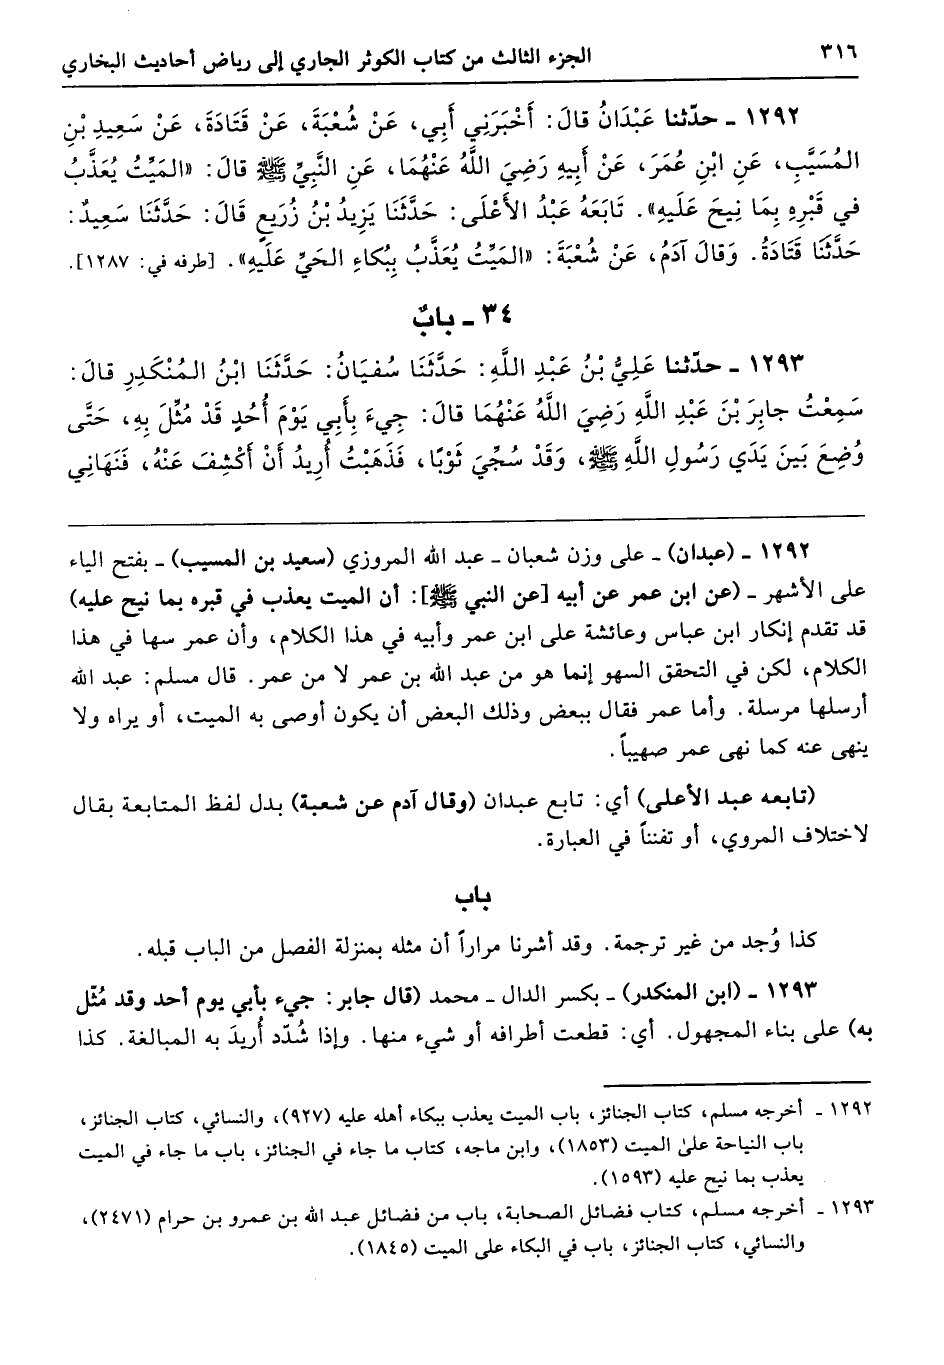 ٣١٦
الجزء الثالث من كتاب الكوثر الجاري إلى رياض أحاديث البخاري
١٢٩٢ ـ حدّثنا عَبْدَانُ قالَ: أَخْبَرَنِي أَبِي، عَنْ شُعْبَةَ، عَنْ قَتَادَةَ، عَنْ سَعِيدِ بْنِ
المُسَيَّبِ، عَنِ ابْنِ عُمَرَ، عَنْ أَبِيهِ رَضِيَ اللَّهُ عَنْهُمَا، عَنِ النَّبِيِّ ﷺ قالَ: «المَيِّتُ يُعَذَّبُ
في قَبْرِهِ بِمَا نِيحَ عَلَيهِ». تَابَعَهُ عَبْدُ الأَعْلَى: حَدَّثَنَا يَزِيدُ بْنُ زُرَيعٍ قَالَ: حَدَّثَنَا سَعِيدٌ:
حَدَّثَنَا قَتَادَةُ. وَقَالَ آدَمُ، عَنْ شُعْبَةَ: «المَيِّتُ يُعَذَّبُ بِبُكاءِ الحَيِّ عَلَيهِ». [طرفه في: ١٢٨٧].
٣٤ ـ بابٌ
١٢٩٣ ـ حدّثنا عَلِيُّ بْنُ عَبْدِ اللَّهِ: حَدَّثَنَا سُفيَانُ: حَدَّثَنَا ابْنُ المُنْكَدِرِ قالَ:
سَمِعْتُ جابِرَ بْنَ عَبْدِ اللَّهِ رَضِيَ اللَّهُ عَنْهُمَا قالَ: جِيءَ بِأَبِي يَوْمَ أُحُدٍ قَدْ مُثِّلَ بِهِ، حَتَّى
وُضِعَ بَينَ يَدَي رَسُولِ اللَّهِ ﷺ، وَقَدْ سُجِّيَ ثَوْبًا، فَذَهَبْتُ أُرِيدُ أَنْ أَكْشِفَ عَنْهُ، فَنَهَانِي
١٢٩٢ ـ (عبدان) ـ على وزن شعبان ـ عبد الله المروزي (سعيد بن المسيب) ـ بفتح الياء
على الأشهر ـ (عن ابن عمر عن أبيه [عن النبي ﷺ]: أن الميت يعذب في قبره بما نيح عليه)
قد تقدم إنكار ابن عباس وعائشة على ابن عمر وأبيه في هذا الكلام، وأن عمر سها في هذا
الكلام، لكن في التحقق السهو إنما هو من عبد الله بن عمر لا من عمر. قال مسلم: عبد الله
أرسلها مرسلة. وأما عمر فقال ببعض وذلك البعض أن يكون أوصى به الميت، أو يراه ولا
ينهى عنه كما نهى عمر صهيباً.
(تابعه عبد الأعلى) أي: تابع عبدان (وقال آدم عن شعبة) بدل لفظ المتابعة بقال
لاختلاف المروي، أو تفنناً في العبارة.
باب
كذا وُجد من غير ترجمة. وقد أشرنا مراراً أن مثله بمنزلة الفصل من الباب قبله.
١٢٩٣ ـ (ابن المنكدر) ـ بكسر الدال ـ محمد (قال جابر: جيء بأبي يوم أحد وقد مُثّل
به) على بناء المجهول. أي: قطعت أطرافه أو شيء منها. وإذا شُدّد أُريدَ به المبالغة. كذا
١٢٩٢ ـ أخرجه مسلم، كتاب الجنائز، باب الميت يعذب ببكاء أهله عليه (٩٢٧)، والنسائي، كتاب الجنائز،
باب النياحة على الميت (١٨٥٣)، وابن ماجه، كتاب ما جاء في الجنائز، باب ما جاء في الميت
يعذب بما نيح عليه (١٥٩٣).
١٢٩٣ ـ أخرجه مسلم، كتاب فضائل الصحابة، باب من فضائل عبد الله بن عمرو بن حرام (٢٤٧١)،
والنسائي، كتاب الجنائز، باب في البكاء على الميت (١٨٤٥).